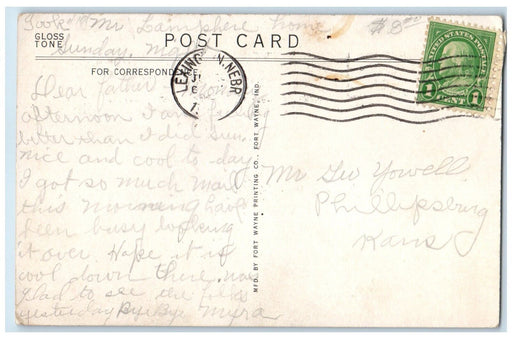 Took Mr Lamphere home
Sunday,
$8
GLOSS
TONE
POST CARD
FOR CORRESPOND
LEXINGTON, NEBR
UNITED STATES POSTAGE
1 CENT 1
Dear Father
afternoon I am feeling
better than I did Sun.
nice and cool to-day
I got so much mail
this morning have
been busy looking
it over. Hope it is
cool down there. was
glad to see the folks
yesterday Bye Bye Myra
MFD. BY FORT WAYNE PRINTING CO., FORT WAYNE, IND.
Mr Geo Yowell
Phillipsburg
Kans